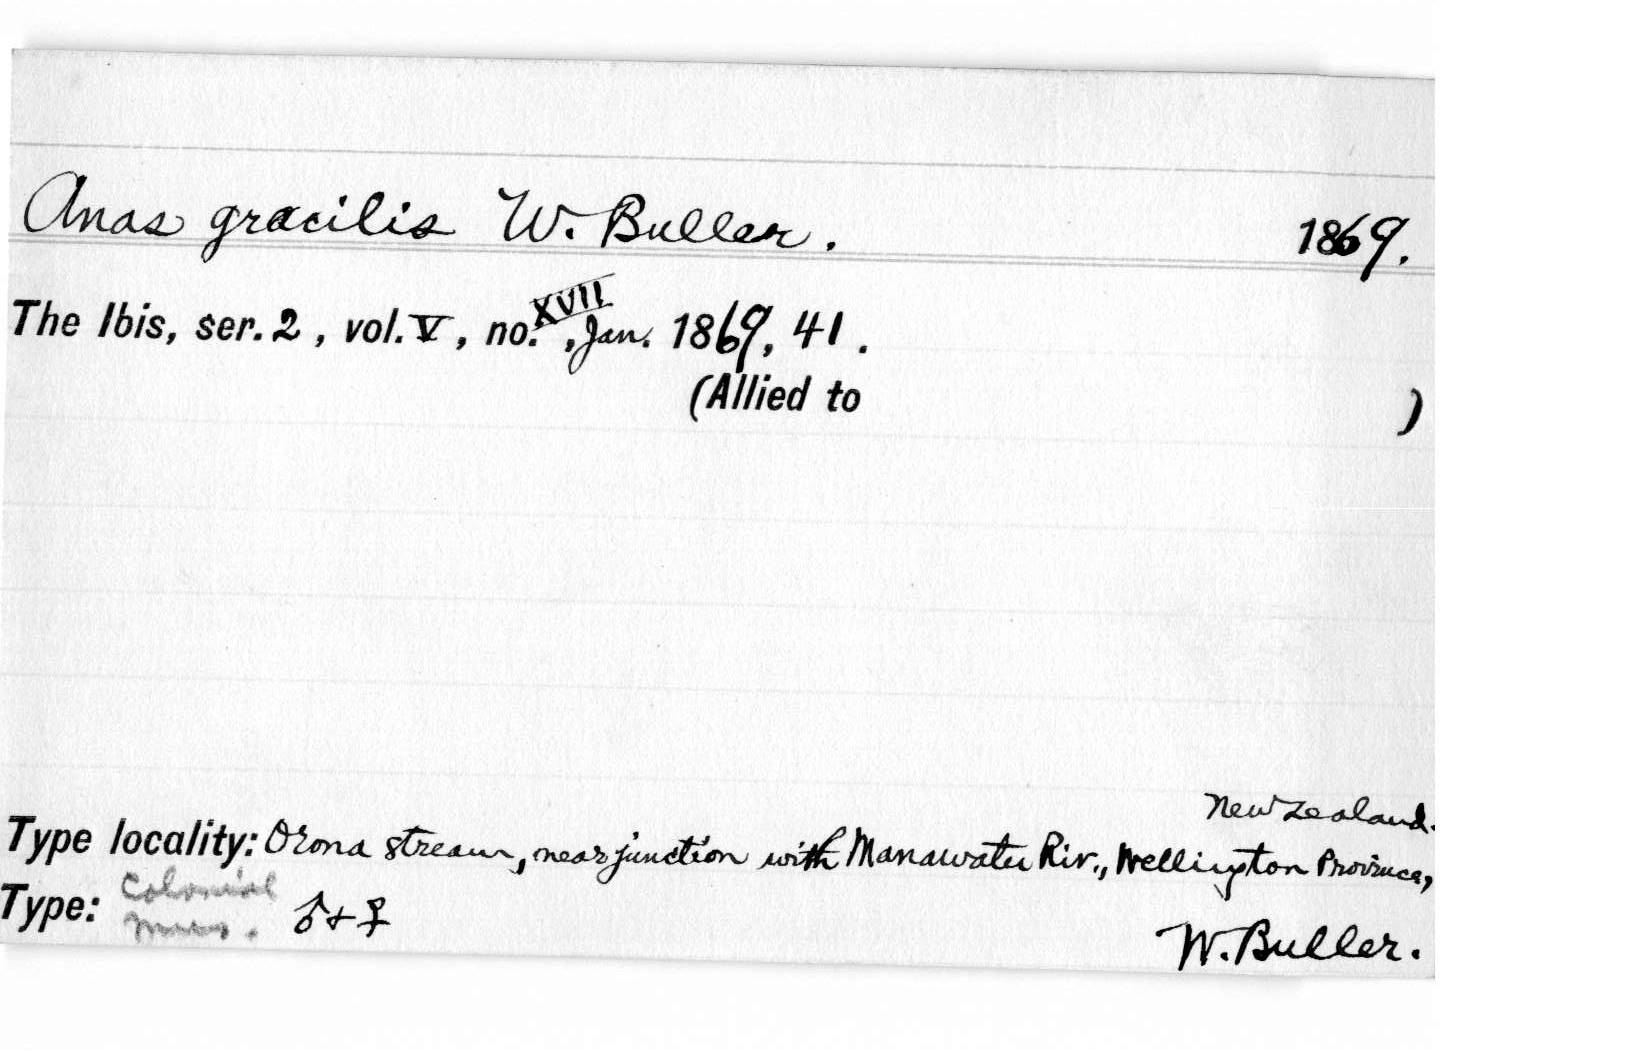 Anas gracilis W. Buller. 1869.
The Ibis, ser. 2, vol. V, no. XVII, Jan. 1869, 41.
(Allied to )
New Zealand.
Type locality: Orona stream, near junction with Manawatu Riv., Wellington Province,
Type: Colonial
Mus. ♂ + ♀
W. Buller.